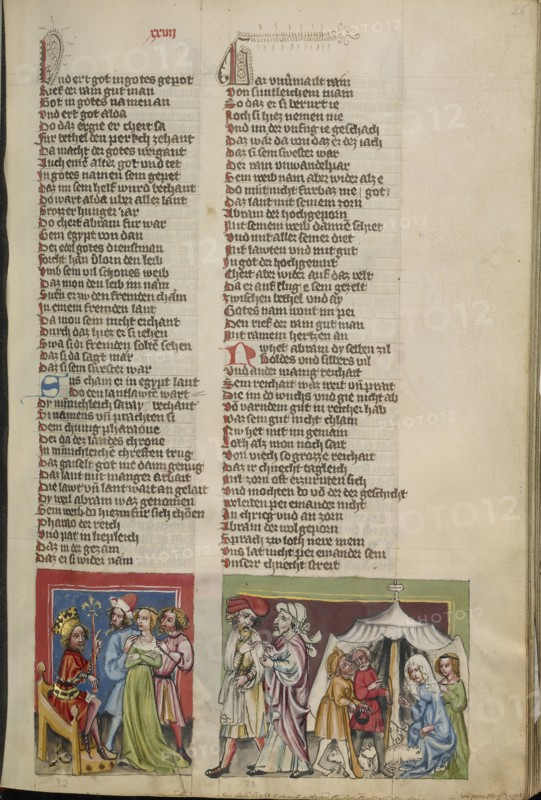 xxviij
26
Vnd ert got in gotes gepot
Rief der rain gut man
Got in gotes namen an
Vnd ert got alda
Do daz ergie er chert sa
Fur bethel den perkch zehant
Da macht der gotes weigant
Auch einē alter got vnd tet
In gotes namen sein gepet
Daz im sein helf wurd bechant
Do wart alda vber allez lant
Grozzer hunger iar
Do chert abram fur war
Gein egypt von dan
Der edel gotes dienstman
Vorcht han v'lorn den leib
Vmb sein vil schones weib
Daz mon den leib im näm
Swen er zv den fremden chäm
In einem fremden lant
Da mon sein nicht erchant
Durch daz hiez er si iehen
Swa si di fremden solten sehen
Daz si da sagt mär
Daz si sein swester wär
Sus cham er in egypt lant
Do den lantläwte wart
Dy minichleich saray bechant
Si namens vn prachten si
Dem chunig pharaone
Der da der landes chrone
In minichleiche chreften trug
Daz geiselt got me dann genug
Daz lant mit manger arbait
Die lawt vn lant wart an geleit
Dy weil abram waz genomen
Sein weib do hiez im fur sich chomen
Pharao der reich
Vnd pat in liepleich
Daz in der gezam
Daz er si wider nam
Gar vnuermailt rain
Von suntleichem main
So daz er si berurt ie
Noch si hiez niemen nie
Vnd im der vnfug ie geschach
Daz waz da von daz er dez iach
Daz si sein swester war
Der rain vnwandelpar
Sein weib nam aber wider alz e
Do mut nicht furbaz me got
Daz lant mit seinem zorn
Abram der hochgeporn
Mit seinem weib dannē schiet
Vnd mit aller seiner diet
Mit lawten vnd mit gut
In got der hochgemut
Chert aber wider auf daz velt
Da er auf slug e sein gezelt
Zwischen bethel vnd ay
Gotes nam wont im pei
Den rief der rain gut man
Mit rainem hertzen an
Nv het abram dy selben zil
Goldes vnd silbers vil
Vnd ander manig reichait
Sein reichait waz weit vn prait
Die im do wuchs vnd gie nicht ab
Vō varndem gut in reicher hab
Waz sein gut nicht chlain
Ew het mit im gemain
Loth alz mon noch sait
Von viech so grozze reichait
Daz ir chnecht tägleich
Mit zorn oft erzurnten sich
Vnd mochten do vō der der geschicht
Beleiben pei einander nicht
An chrieg vnd an zorn
Abram der wolgeporn
Sprach zw loth nere mein
Vns lat nicht pei einander sein
Vnserr chnecht streit